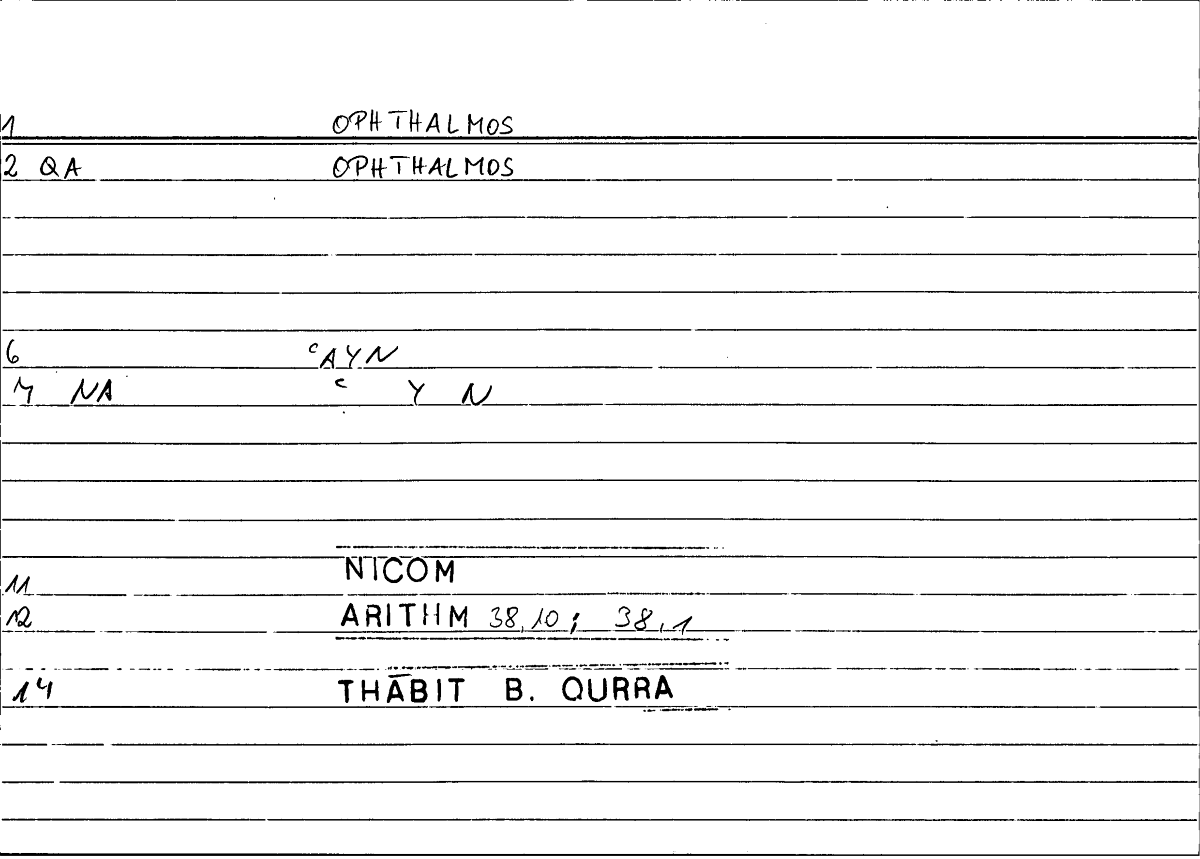 1 OPHTHALMOS
2 QA OPHTHALMOS
6 ᶜAYN
7 NA ᶜ Y N
11 NICOM
12 ARITHM 38,10; 38,1
14 THĀBIT B. QURRA